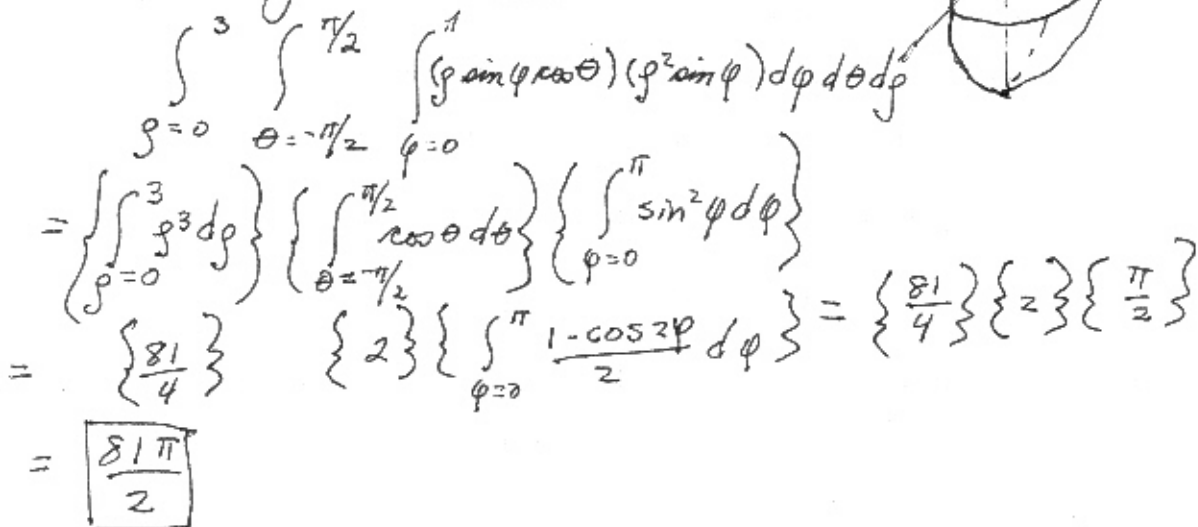 ∫_{ρ=0}^{3} ∫_{θ=-π/2}^{π/2} ∫_{φ=0}^{π} (ρ sin φ cos θ) (ρ² sin φ) dφ dθ dρ
= {∫_{ρ=0}^{3} ρ³ dρ} {∫_{θ=-π/2}^{π/2} cos θ dθ} {∫_{φ=0}^{π} sin² φ dφ}
= {81/4} {2} {∫_{φ=0}^{π} (1 - cos 2φ)/2 dφ} = {81/4} {2} {π/2}
= 81π/2